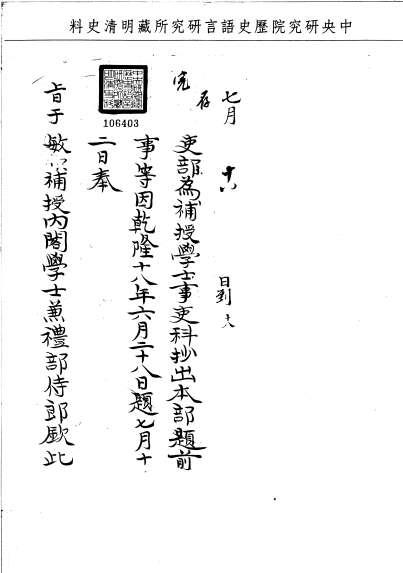 中央研究院歷史語言研究所藏明清史料
七月 十八 日到 十八
完 存
106403
吏部為補授學士事吏科抄出本部題前
事等因乾隆十八年六月二十八日題七月十
二日奉
旨于敏中補授內閣學士兼禮部侍郎欽此